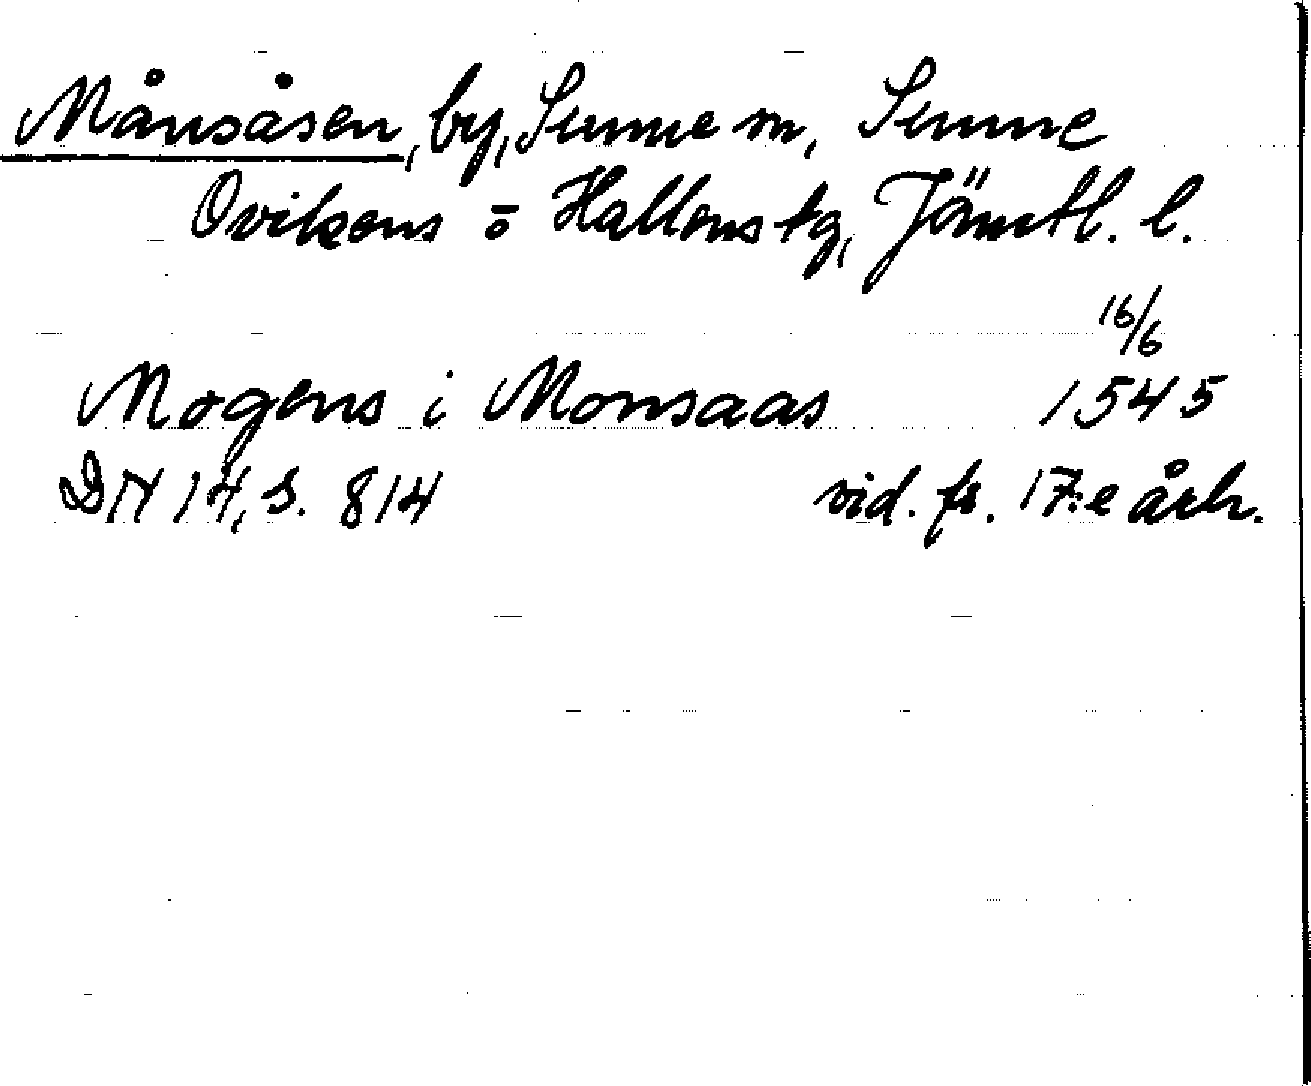 Månsåsen, by, Sunne sn, Sunne
Ovikens o Hallens tg, Jämtl. l.
16/6
Mogens i Monsaas 1545
DN 14, s. 814 vid. fr. 17:e årh.